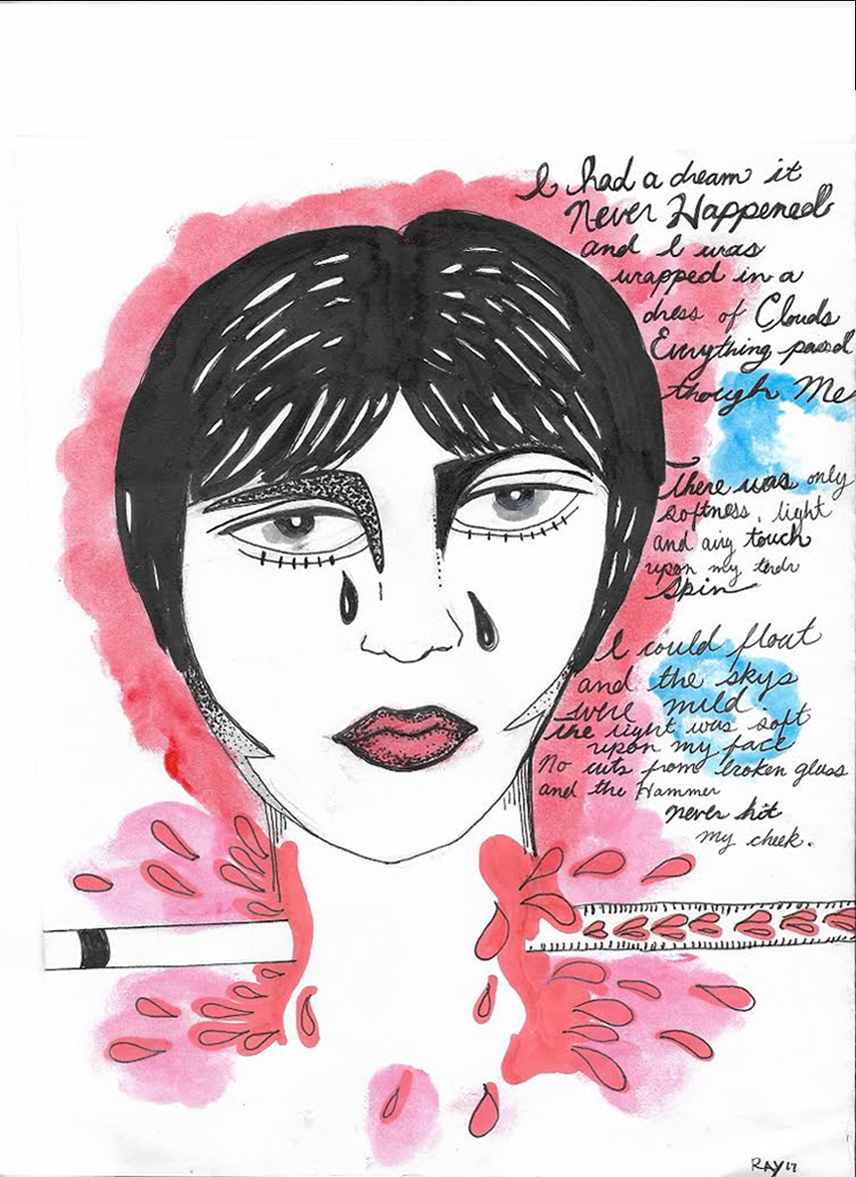 I had a dream it
Never Happened
and I was
wrapped in a
dress of Clouds
Everything passd
though Me
There was only
softness, light
and airy touch
upon my
Spin
I could float
and the skys
were mild.
the light was soft
upon my face
No cuts from broken glass
and the Hammer
never hit
my cheek.
RAY17